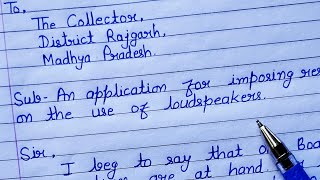 To,
The Collector,
District Rajgarh,
Madhya Pradesh.
Sub- An application for imposing res
on the use of loudspeakers.
Sir,
I beg to say that o Boa
are at hand.